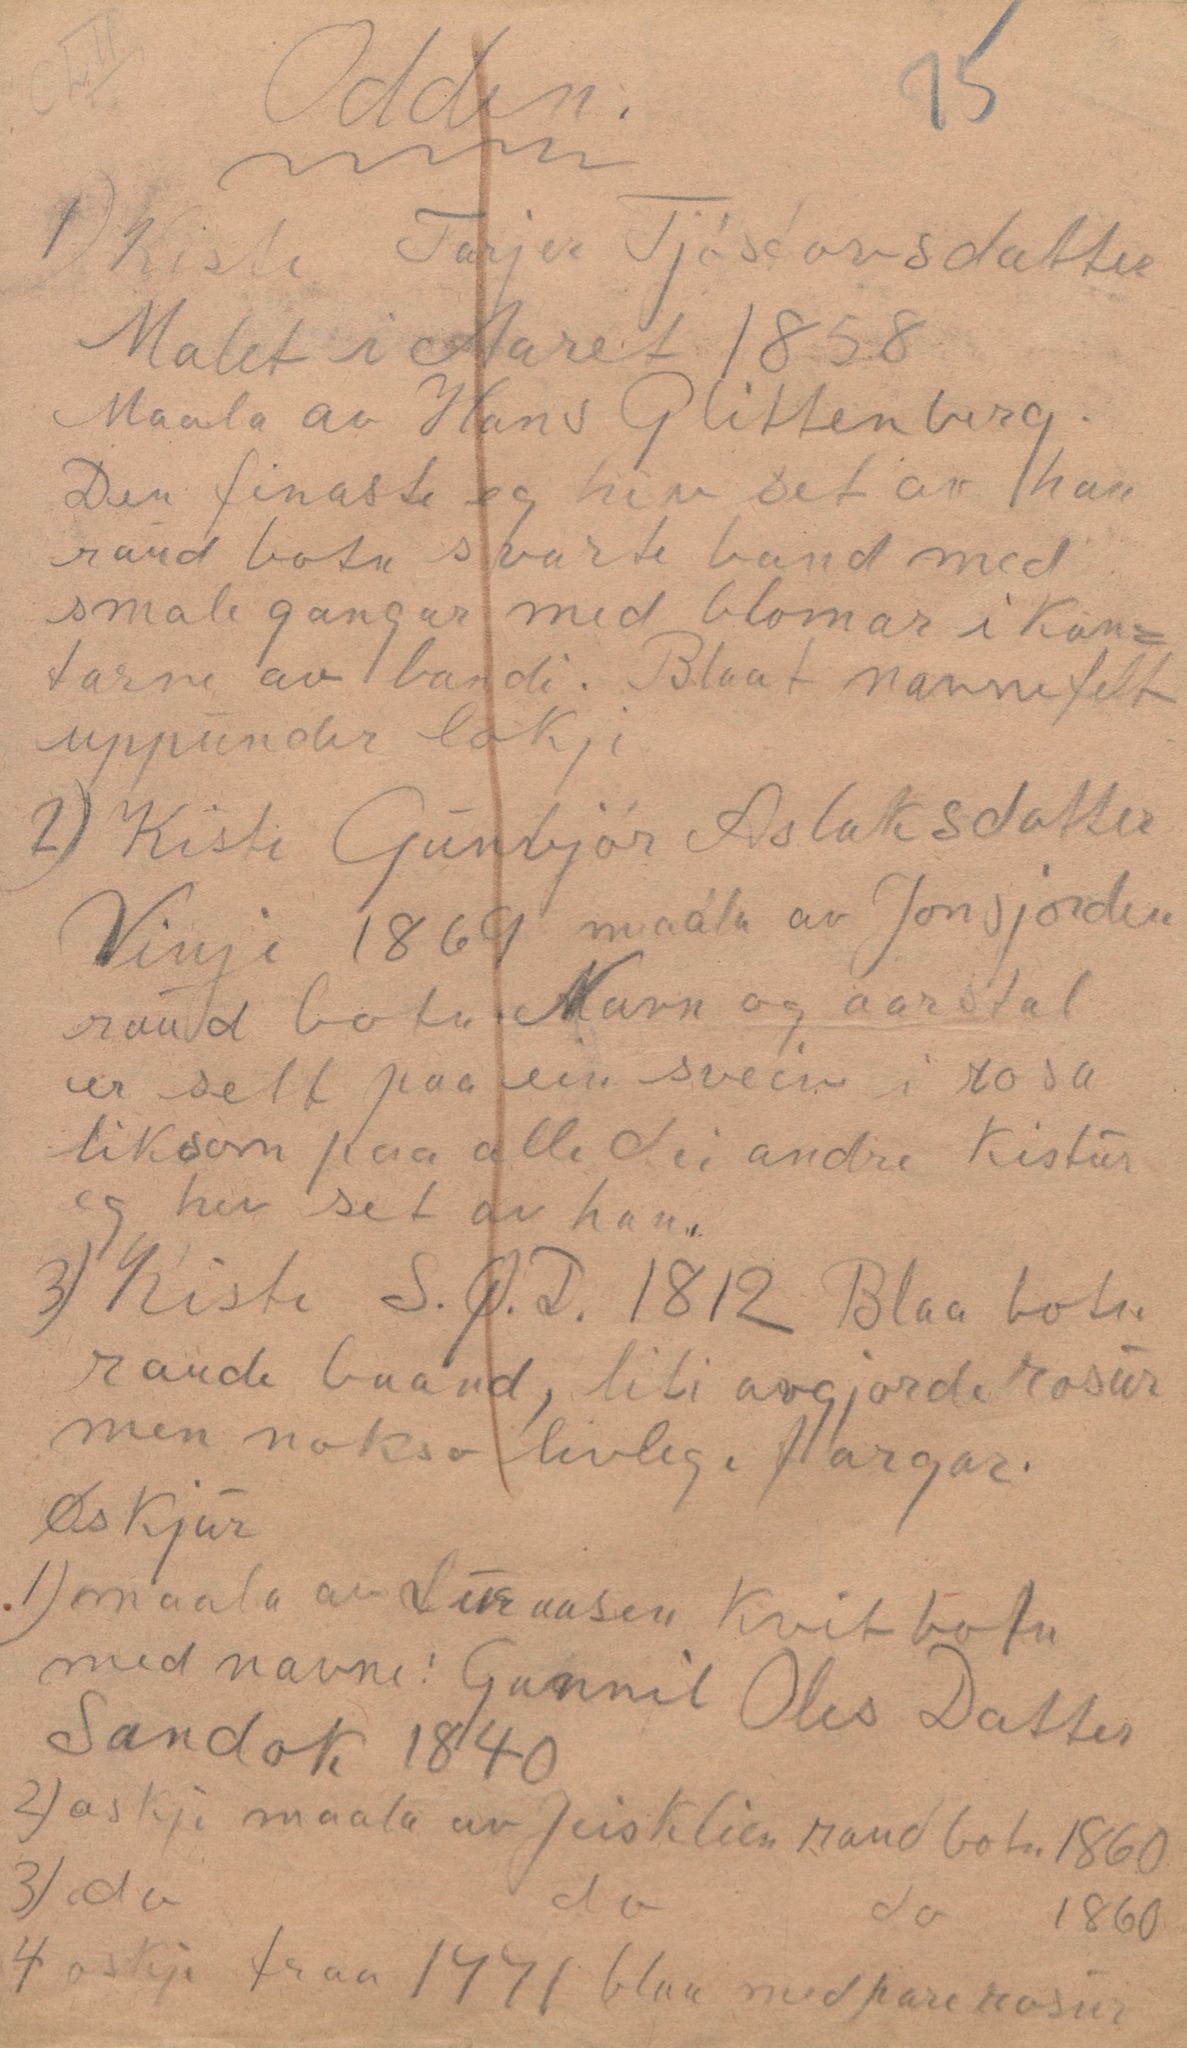 Odden.
75
1) Kiste Tarjer Tjöstovsdatter
Malet i Aaret 1858
Maala av Hans Glittenberg.
Den finaste eg hev set av han
raud botn svarte band med
smale gangar med blomar i Kan=
tarne av bandi. Blaat navnefelt
uppunder lokji
2) Kiste Gunbjör Aslaksdatter
Vinje 1869 maala av Jonsjorden
raud botn Navn og aarstal
er sett paa ein svein i rosa
liksom paa alle dei andre Kistur
eg hev set av han.
3) Kiste S. O. D. 1812 Blaa botn
raude baand, liti avgjorde rosur
men nokso livlege fargar.
Øskjur
1) maala av Luraasen Kvit botn
med navne: Gunnil Oles Datter
Sandok 1840
2) oskje maala av Jeisklien raud botn 1860
3) do do do 1860
4 oskje fraa 1771 blaa med pare rosur